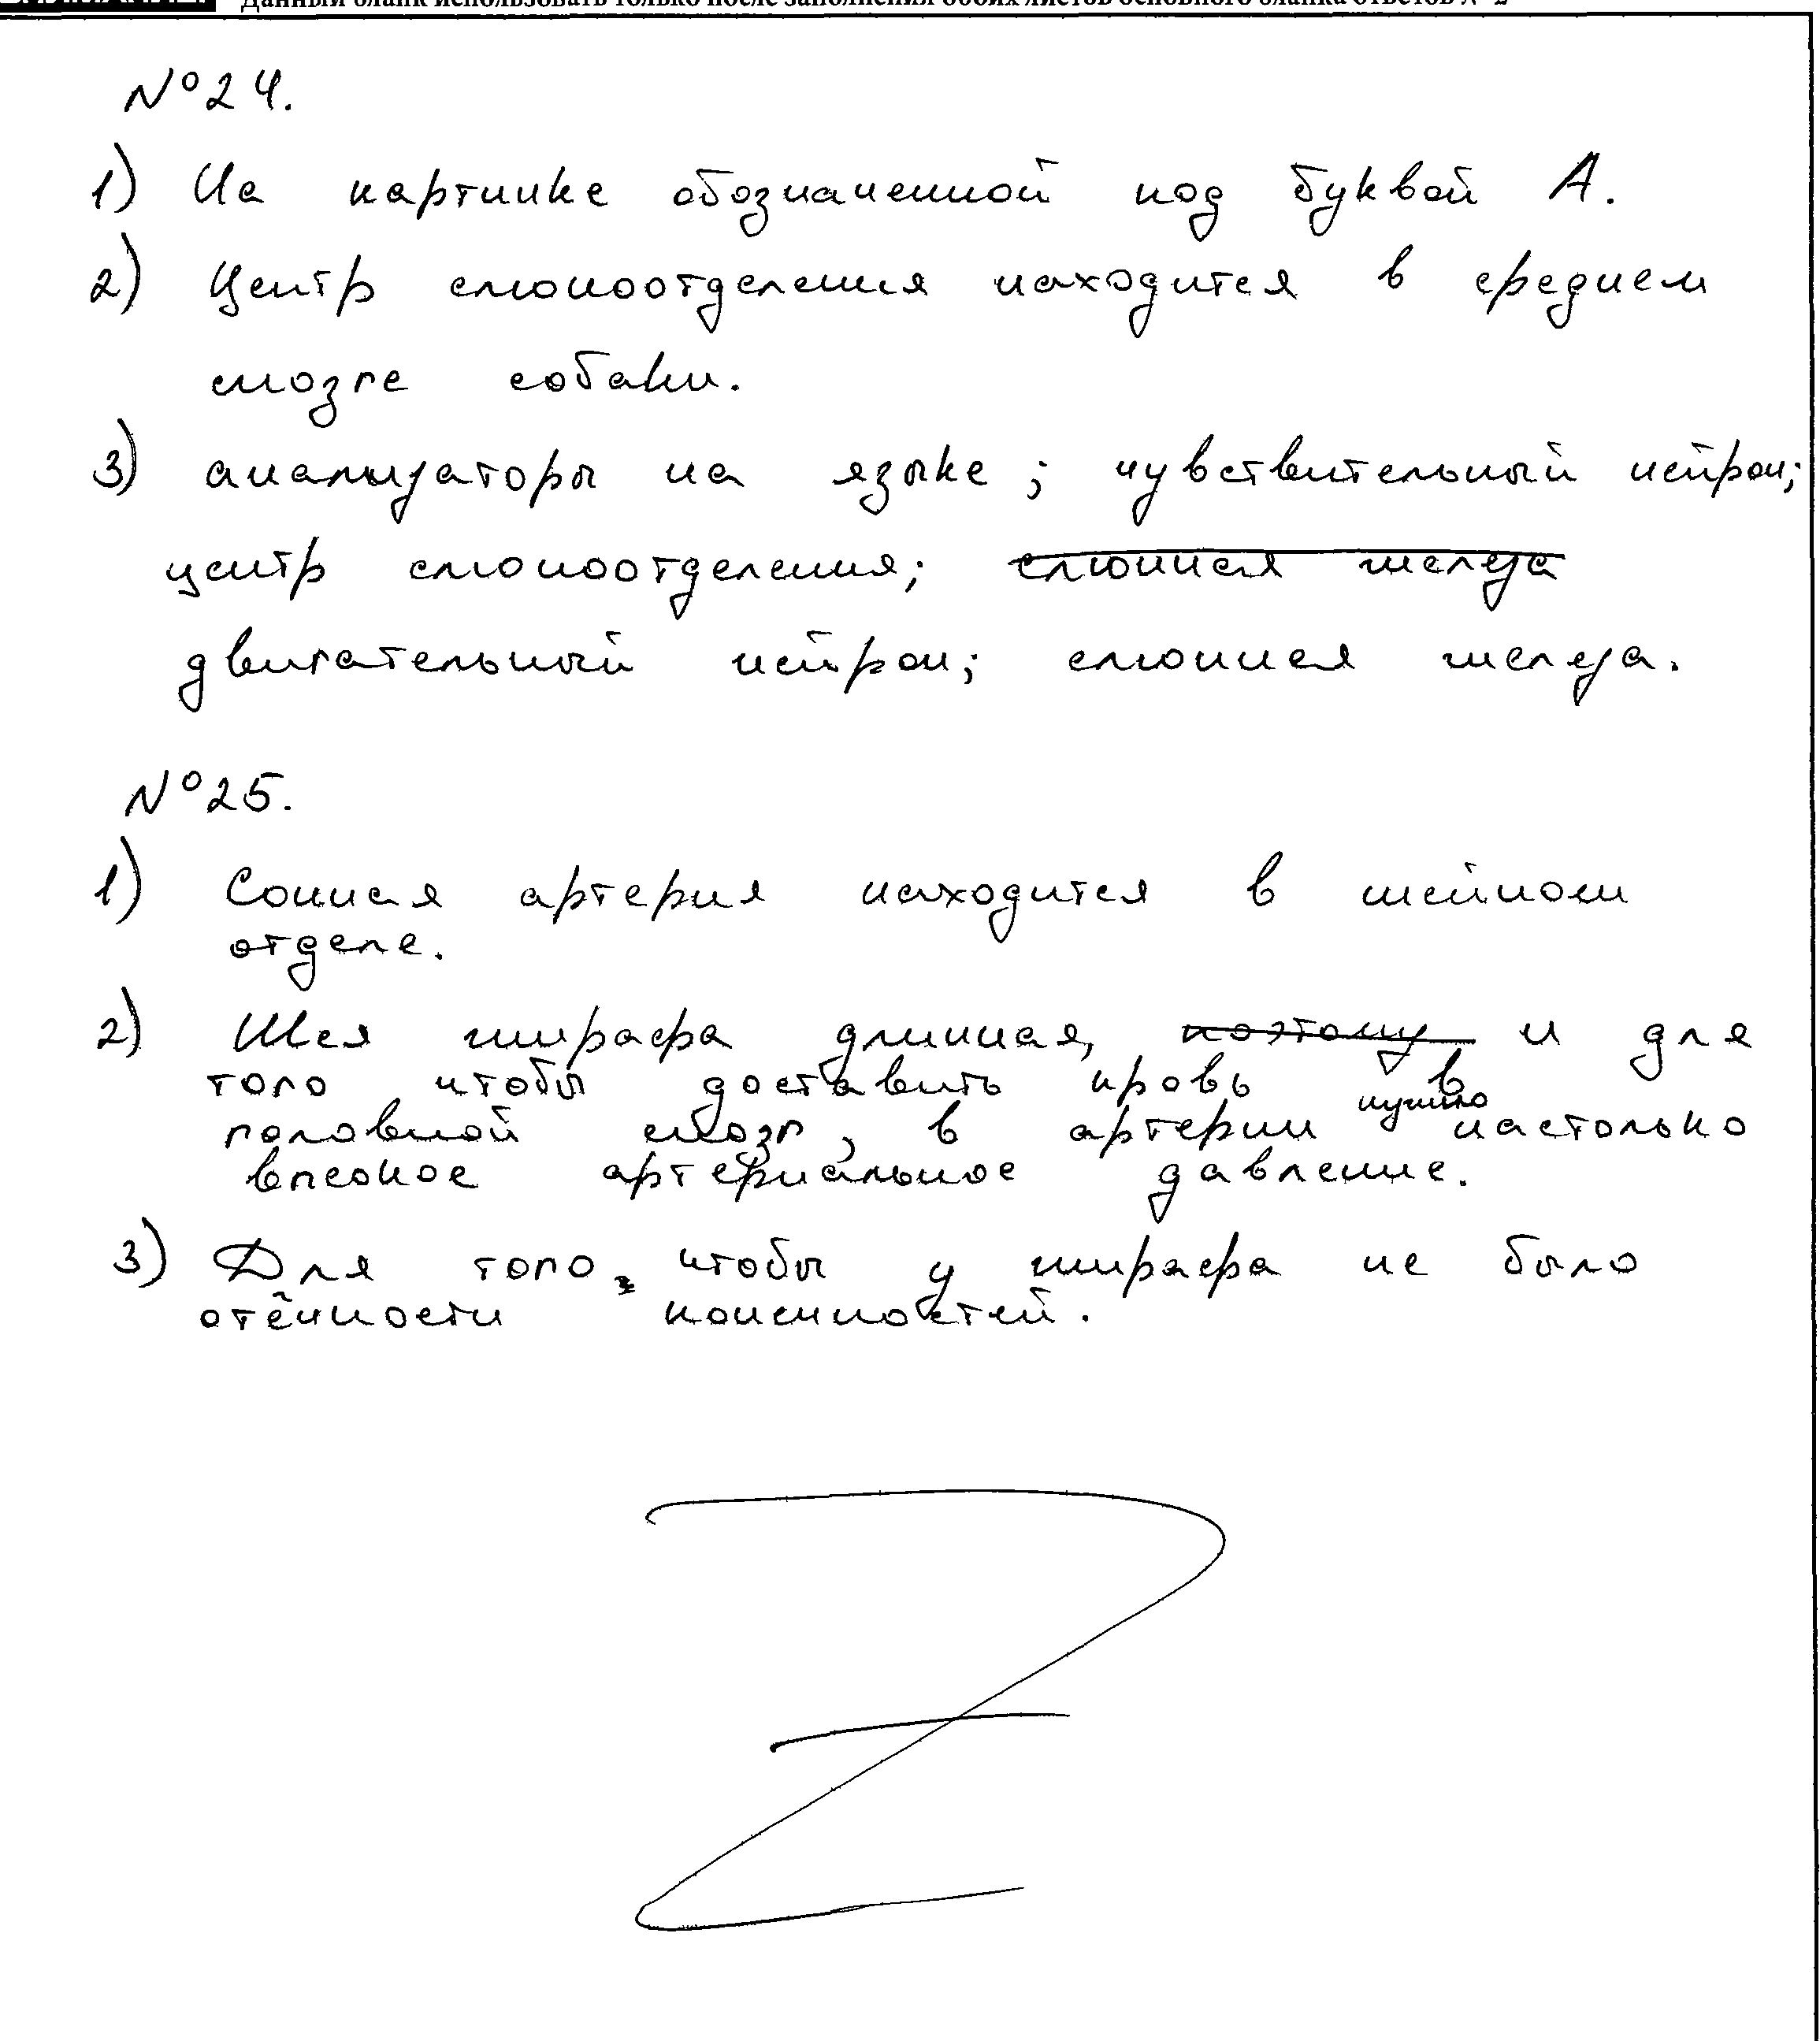 Данный бланк использовать только после заполнения обоих листов основного бланка ответов № 2
№24.
1) На картинке обозначенной под буквой А.
2) Центр слюноотделения находится в среднем
мозге собаки.
3) анализаторы на языке; чувствительный нейрон;
центр слюноотделения; слюнная железа
двигательный нейрон; слюнная железа.
№25.
1) Сонная артерия находится в шейном
отделе.
2) Шея жирафа длинная, поэтому и для
того чтобы доставить кровь в
головной мозг, в артерии нужно настолько
высокое артериальное давление.
3) Для того, чтобы у жирафа не было
отёчности конечностей.
Z